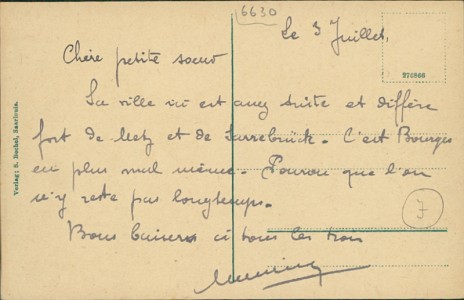 6630
Le 3 Juillet.
276866
Chère petite soeur
La ville ici est assez triste et diffère
fort de Metz et de Sarrebrück. C'est Bourges
en plus mal même. Pourvu que l'on
n'y reste pas longtemps.
7
Bons baisers à tous les trois
Verlag: S. Buchel, Saarlouis.